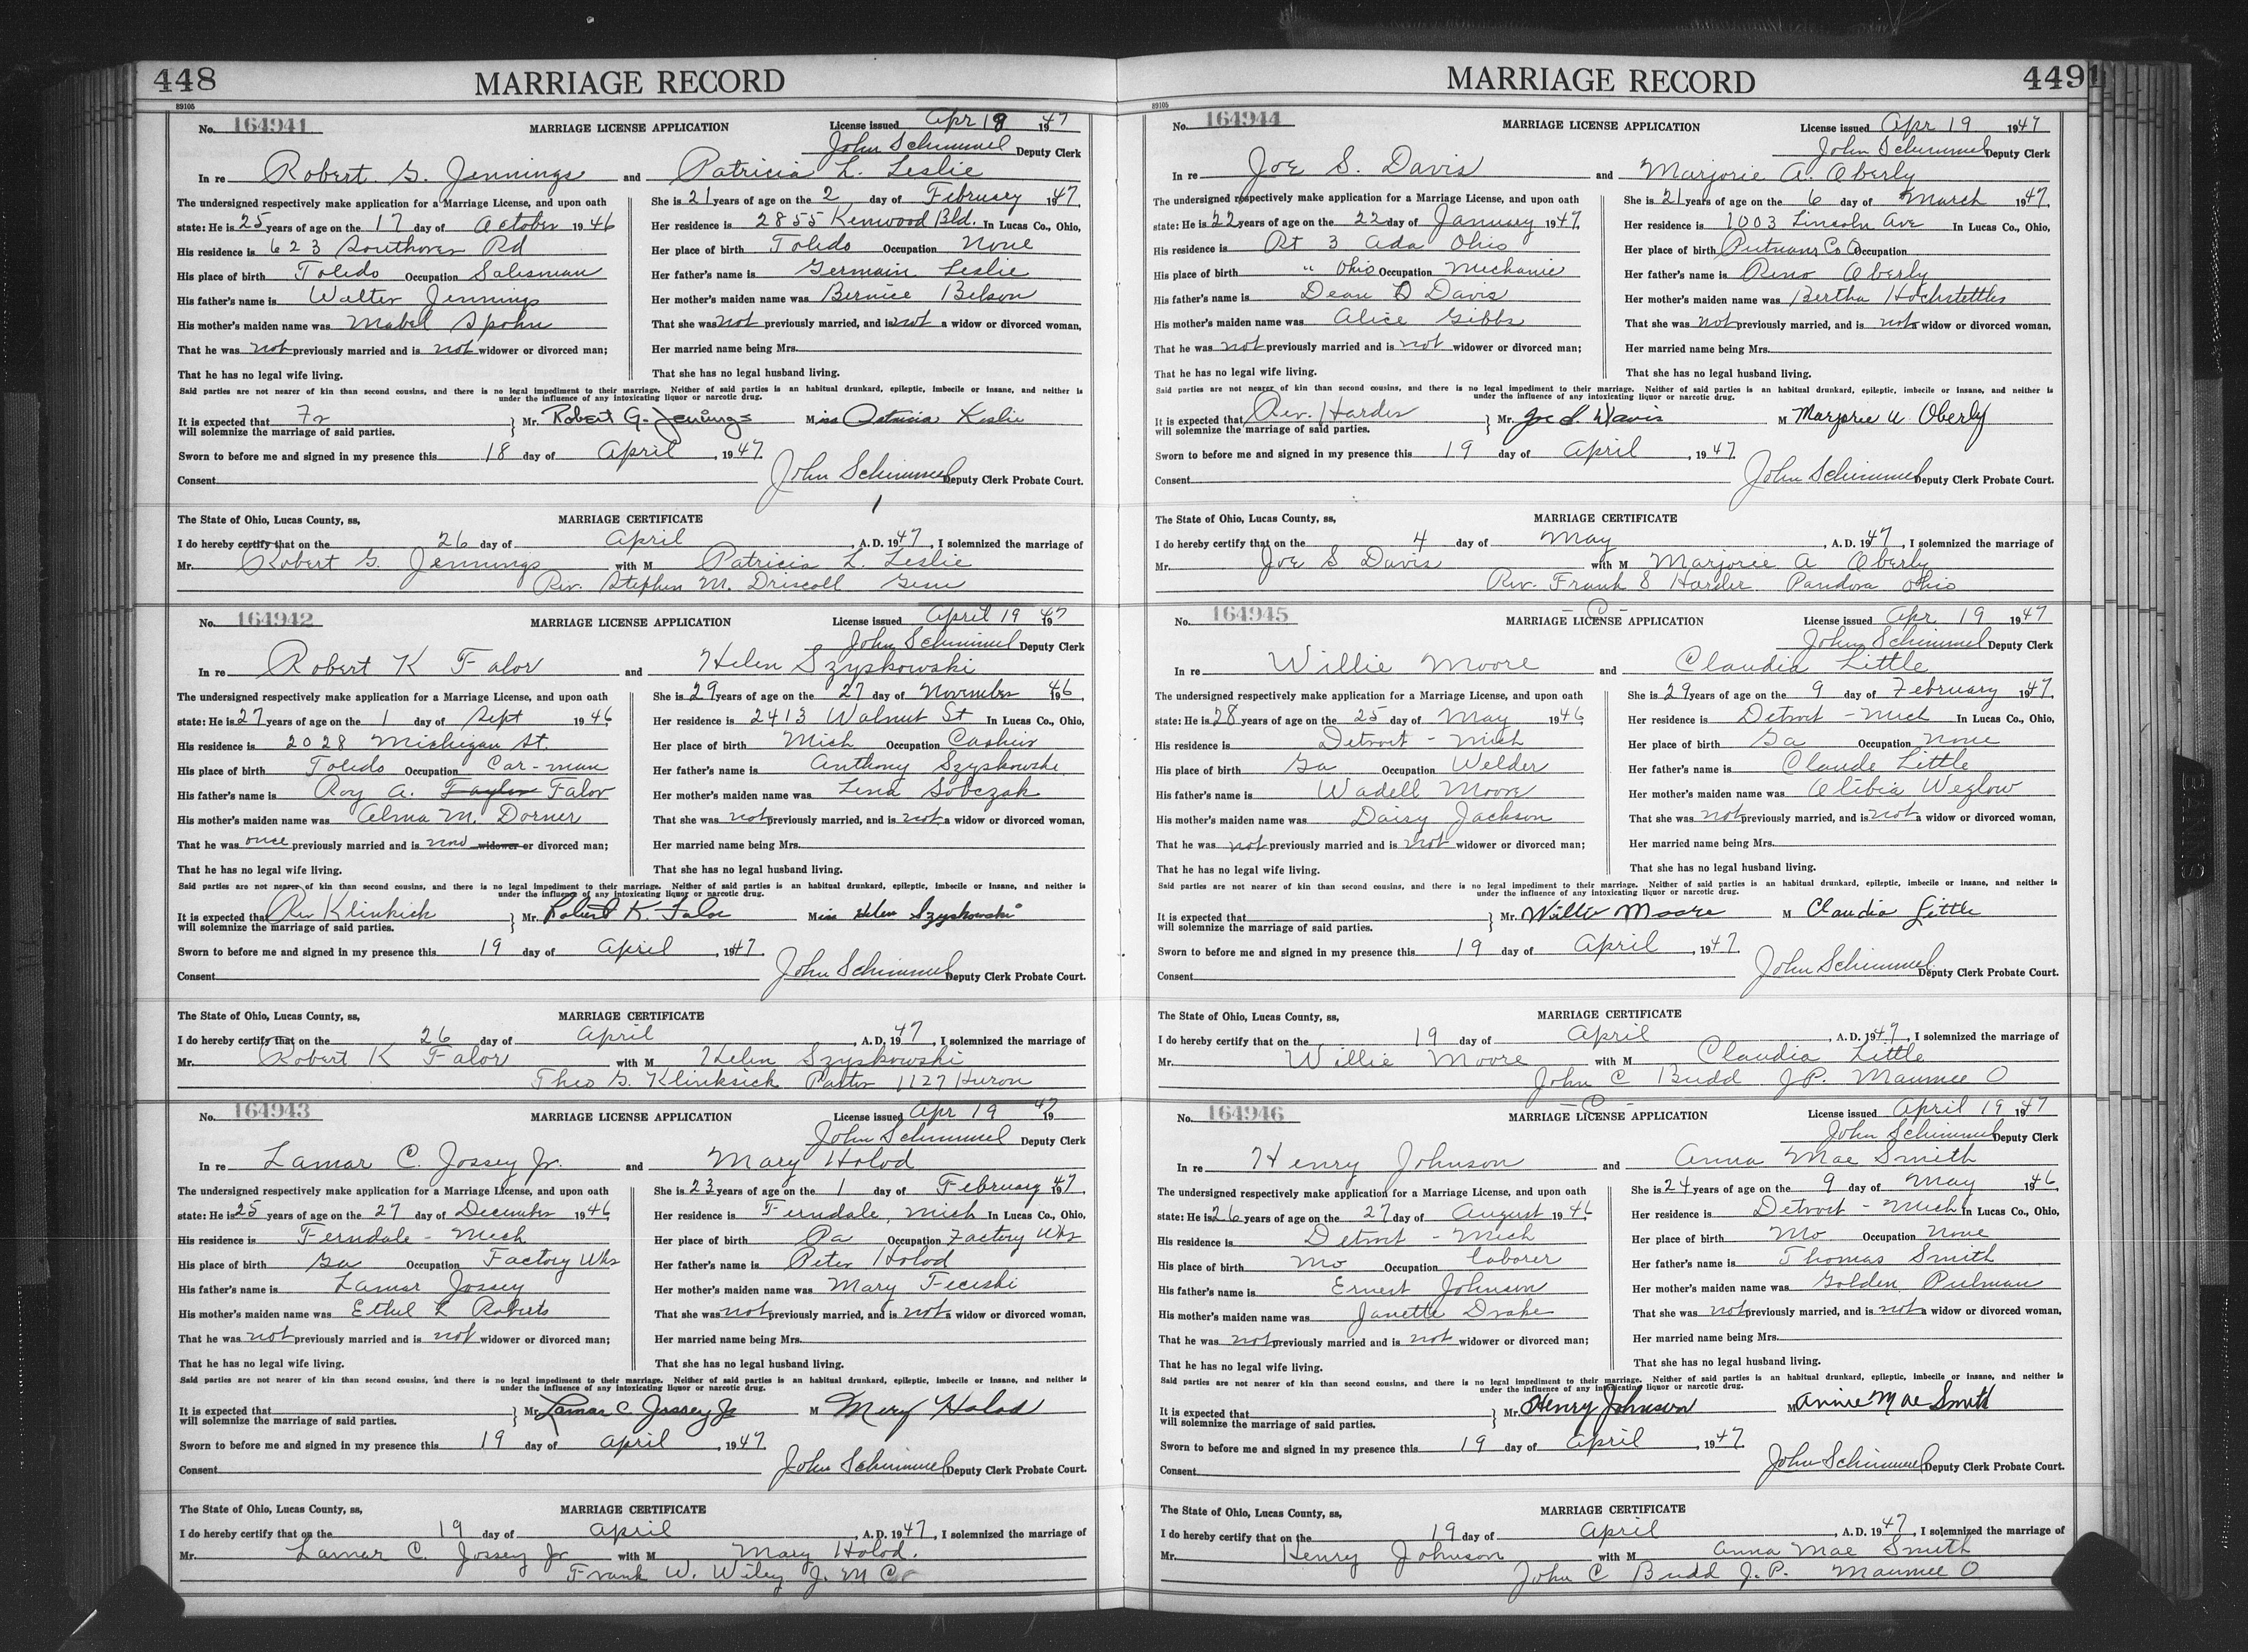 448 MARRIAGE RECORD
89105
No. 164941 MARRIAGE LICENSE APPLICATION License issued Apr 18 1947
John Schimmel Deputy Clerk
In re Robert G. Jennings and Patricia L. Leslie
The undersigned respectively make application for a Marriage License, and upon oath
state: He is 25 years of age on the 17 day of October 1946
His residence is 623 Southover Rd
His place of birth Toledo Occupation Salesman
His father's name is Walter Jennings
His mother's maiden name was Mabel Spohn
That he was not previously married and is not widower or divorced man;
That he has no legal wife living.
She is 21 years of age on the 2 day of February 1947.
Her residence is 2855 Kenwood Bld. In Lucas Co., Ohio,
Her place of birth Toledo Occupation None
Her father's name is Germain Leslie
Her mother's maiden name was Bernice Belson
That she was not previously married, and is not a widow or divorced woman,
Her married name being Mrs.
That she has no legal husband living.
Said parties are not nearer of kin than second cousins, and there is no legal impediment to their marriage. Neither of said parties is an habitual drunkard, epileptic, imbecile or insane, and neither is
under the influence of any intoxicating liquor or narcotic drug.
It is expected that Fr } Mr. Robert G. Jennings Miss Patricia Leslie
will solemnize the marriage of said parties.
Sworn to before me and signed in my presence this 18 day of April, 1947.
Consent John Schimmel Deputy Clerk Probate Court.
The State of Ohio, Lucas County, ss, MARRIAGE CERTIFICATE
I do hereby certify that on the 26 day of April, A. D. 1947, I solemnized the marriage of
Mr. Robert G. Jennings with M Patricia L. Leslie
Rev. Stephen M. Driscoll Gesu
No. 164942 MARRIAGE LICENSE APPLICATION License issued April 19 1947
John Schimmel Deputy Clerk
In re Robert K Falor and Helen Szyskowski
The undersigned respectively make application for a Marriage License, and upon oath
state: He is 27 years of age on the 1 day of Sept 1946
His residence is 2028 Michigan St.
His place of birth Toledo Occupation Car-man
His father's name is Roy A. Taylor Falor
His mother's maiden name was Alma M. Dorner
That he was once previously married and is now widower or divorced man;
That he has no legal wife living.
She is 29 years of age on the 27 day of November 1946
Her residence is 2413 Walnut St In Lucas Co., Ohio,
Her place of birth Mich Occupation Cashier
Her father's name is Anthony Szyskowski
Her mother's maiden name was Lena Sobczak
That she was not previously married, and is not a widow or divorced woman,
Her married name being Mrs.
That she has no legal husband living.
Said parties are not nearer of kin than second cousins, and there is no legal impediment to their marriage. Neither of said parties is an habitual drunkard, epileptic, imbecile or insane, and neither is
under the influence of any intoxicating liquor or narcotic drug.
It is expected that Rev Klinksick } Mr. Robert K. Falor Miss Helen Szyskowski
will solemnize the marriage of said parties.
Sworn to before me and signed in my presence this 19 day of April, 1947.
Consent John Schimmel Deputy Clerk Probate Court.
The State of Ohio, Lucas County, ss, MARRIAGE CERTIFICATE
I do hereby certify that on the 26 day of April, A. D. 1947, I solemnized the marriage of
Mr. Robert K Falor with M Helen Szyskowski
Theo G. Klinksick Pastor 1127 Huron
No. 164943 MARRIAGE LICENSE APPLICATION License issued Apr 19 1947
John Schimmel Deputy Clerk
In re Lamar C. Jossey Jr. and Mary Holod
The undersigned respectively make application for a Marriage License, and upon oath
state: He is 25 years of age on the 27 day of December 1946
His residence is Ferndale - Mich
His place of birth Ga Occupation Factory Wkr
His father's name is Lamar Jossey
His mother's maiden name was Ethel L Roberts
That he was not previously married and is not widower or divorced man;
That he has no legal wife living.
She is 23 years of age on the 1 day of February 1947.
Her residence is Ferndale, Mich In Lucas Co., Ohio,
Her place of birth Pa Occupation Factory Wkr
Her father's name is Peter Holod
Her mother's maiden name was Mary Feceshi
That she was not previously married, and is not a widow or divorced woman,
Her married name being Mrs.
That she has no legal husband living.
Said parties are not nearer of kin than second cousins, and there is no legal impediment to their marriage. Neither of said parties is an habitual drunkard, epileptic, imbecile or insane, and neither is
under the influence of any intoxicating liquor or narcotic drug.
It is expected that } Mr. Lamar C. Jossey Jr M Mary Holod
will solemnize the marriage of said parties.
Sworn to before me and signed in my presence this 19 day of April, 1947.
Consent John Schimmel Deputy Clerk Probate Court.
The State of Ohio, Lucas County, ss, MARRIAGE CERTIFICATE
I do hereby certify that on the 19 day of April, A. D. 1947, I solemnized the marriage of
Mr. Lamar C. Jossey Jr with M Mary Holod.
Frank W. Wiley J. M C
MARRIAGE RECORD 449
89105
No. 164944 MARRIAGE LICENSE APPLICATION License issued Apr 19 1947
John Schimmel Deputy Clerk
In re Joe S. Davis and Marjorie A. Oberly
The undersigned respectively make application for a Marriage License, and upon oath
state: He is 22 years of age on the 22 day of January 1947.
His residence is Rt 3 Ada Ohio
His place of birth " Ohio Occupation Mechanic
His father's name is Dean D Davis
His mother's maiden name was Alice Gibbs
That he was not previously married and is not widower or divorced man;
That he has no legal wife living.
She is 21 years of age on the 6 day of March 1947.
Her residence is 1003 Lincoln Ave In Lucas Co., Ohio,
Her place of birth Putnam Co O Occupation
Her father's name is Reno Oberly
Her mother's maiden name was Bertha Hochstettler
That she was not previously married, and is not a widow or divorced woman,
Her married name being Mrs.
That she has no legal husband living.
Said parties are not nearer of kin than second cousins, and there is no legal impediment to their marriage. Neither of said parties is an habitual drunkard, epileptic, imbecile or insane, and neither is
under the influence of any intoxicating liquor or narcotic drug.
It is expected that Rev. Harder } Mr. Joe S. Davis M Marjorie A. Oberly
will solemnize the marriage of said parties.
Sworn to before me and signed in my presence this 19 day of April, 1947.
Consent John Schimmel Deputy Clerk Probate Court.
The State of Ohio, Lucas County, ss, MARRIAGE CERTIFICATE
I do hereby certify that on the 4 day of May, A. D. 1947, I solemnized the marriage of
Mr. Joe S Davis with M Marjorie A Oberly
Rev. Frank S Harder Pandora Ohio
- C -
No. 164945 MARRIAGE LICENSE APPLICATION License issued Apr 19 1947
John Schimmel Deputy Clerk
In re Willie Moore and Claudia Little
The undersigned respectively make application for a Marriage License, and upon oath
state: He is 28 years of age on the 25 day of May 1946
His residence is Detroit - Mich
His place of birth Ga Occupation Welder
His father's name is Wadell Moore
His mother's maiden name was Daisy Jackson
That he was not previously married and is not widower or divorced man;
That he has no legal wife living.
She is 29 years of age on the 9 day of February 1947.
Her residence is Detroit - Mich In Lucas Co., Ohio,
Her place of birth Ga Occupation None
Her father's name is Claude Little
Her mother's maiden name was Alibia Weglow
That she was not previously married, and is not a widow or divorced woman,
Her married name being Mrs.
That she has no legal husband living.
Said parties are not nearer of kin than second cousins, and there is no legal impediment to their marriage. Neither of said parties is an habitual drunkard, epileptic, imbecile or insane, and neither is
under the influence of any intoxicating liquor or narcotic drug.
It is expected that } Mr. Willie Moore M Claudia Little
will solemnize the marriage of said parties.
Sworn to before me and signed in my presence this 19 day of April, 1947.
Consent John Schimmel Deputy Clerk Probate Court.
The State of Ohio, Lucas County, ss, MARRIAGE CERTIFICATE
I do hereby certify that on the 19 day of April, A. D. 1947, I solemnized the marriage of
Mr. Willie Moore with M Claudia Little
John C Budd J.P. Maumee O
- C -
No. 164946 MARRIAGE LICENSE APPLICATION License issued April 19 1947
John Schimmel Deputy Clerk
In re Henry Johnson and Anna Mae Smith
The undersigned respectively make application for a Marriage License, and upon oath
state: He is 26 years of age on the 27 day of August 1946
His residence is Detroit - Mich
His place of birth Mo Occupation laborer
His father's name is Ernest Johnson
His mother's maiden name was Janette Drake
That he was not previously married and is not widower or divorced man;
That he has no legal wife living.
She is 24 years of age on the 9 day of May 1946.
Her residence is Detroit - Mich In Lucas Co., Ohio,
Her place of birth Mo Occupation None
Her father's name is Thomas Smith
Her mother's maiden name was Golden Pulman
That she was not previously married, and is not a widow or divorced woman,
Her married name being Mrs.
That she has no legal husband living.
Said parties are not nearer of kin than second cousins, and there is no legal impediment to their marriage. Neither of said parties is an habitual drunkard, epileptic, imbecile or insane, and neither is
under the influence of any intoxicating liquor or narcotic drug.
It is expected that } Mr. Henry Johnson M Annie Mae Smith
will solemnize the marriage of said parties.
Sworn to before me and signed in my presence this 19 day of April, 1947.
Consent John Schimmel Deputy Clerk Probate Court.
The State of Ohio, Lucas County, ss, MARRIAGE CERTIFICATE
I do hereby certify that on the 19 day of April, A. D. 1947, I solemnized the marriage of
Mr. Henry Johnson with M Anna Mae Smith
John C Budd J.P. Maumee O